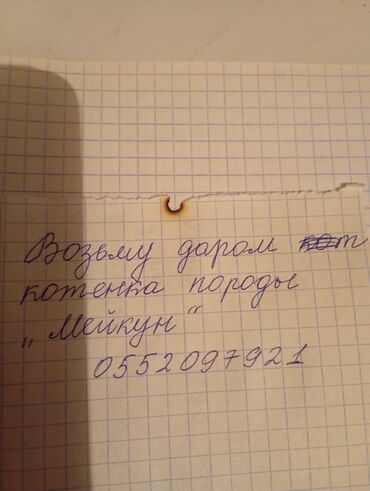 Возьму даром кот
котенка породы
„Мейкун“
0552097921